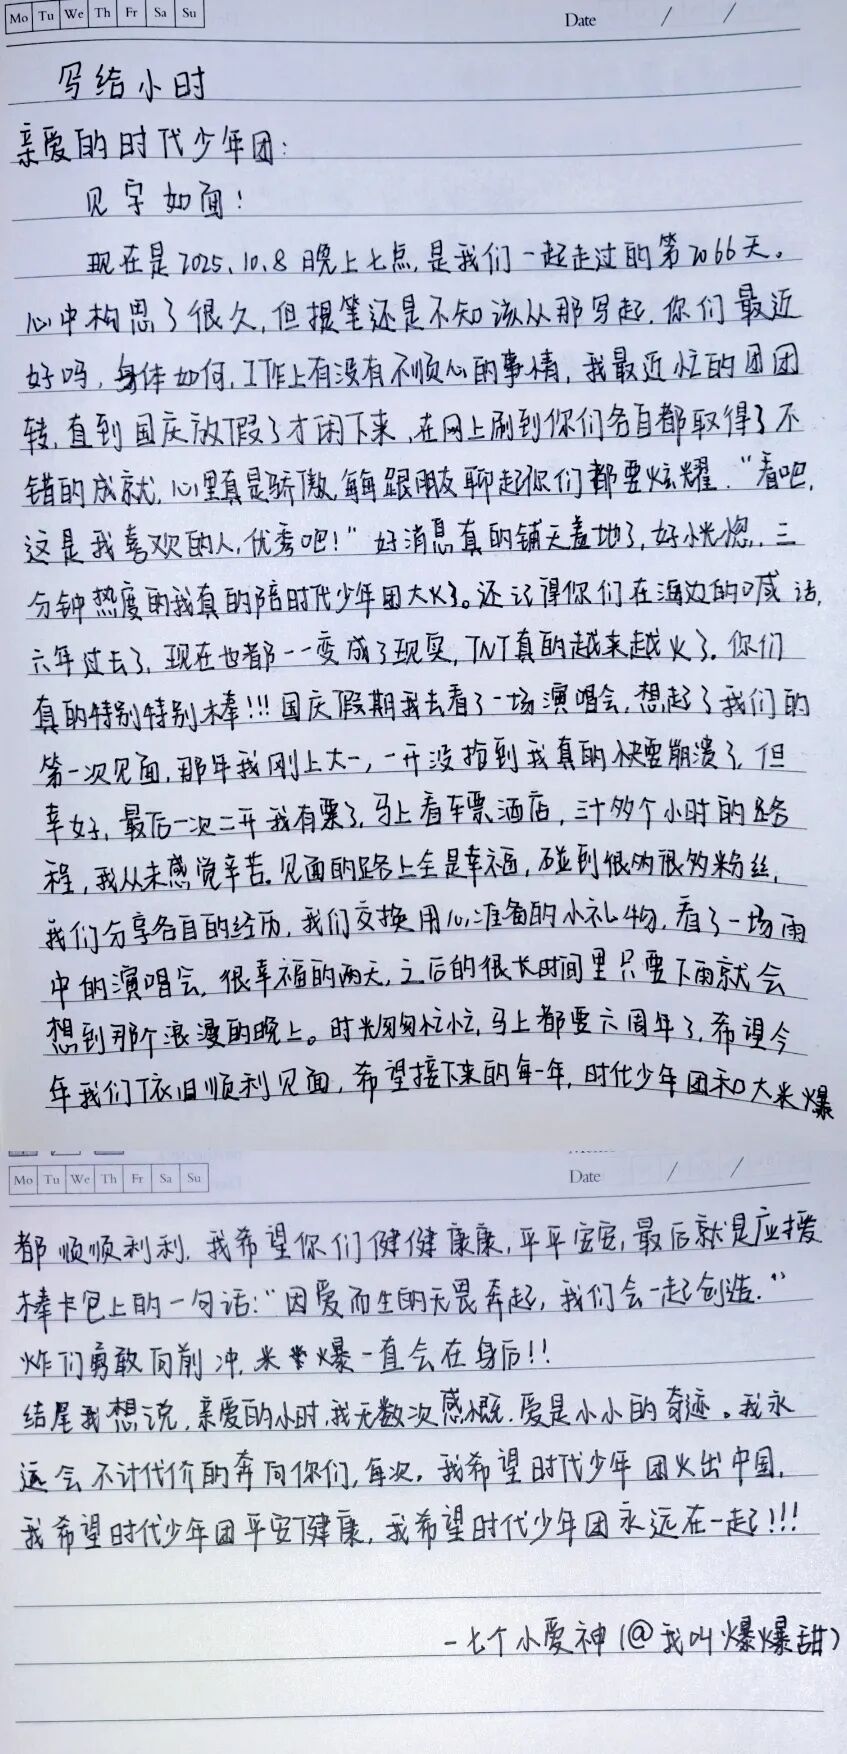 Mo Tu We Th Fr Sa Su Date / /
写给小时
亲爱的时代少年团:
见字如面!
现在是2025.10.8晚上七点,是我们一起走过的第2066天。
心中构思了很久,但提笔还是不知该从那写起,你们最近
好吗,身体如何,工作上有没有不顺心的事情,我最近忙的团团
转,直到国庆放假了才闲下来,在网上刷到你们各自都取得了不
错的成就,心里真是骄傲,每每跟朋友聊起你们都要炫耀,“看吧,
这是我喜欢的人,优秀吧!”好消息真的铺天盖地了,好恍惚,三
分钟热度的我真的陪时代少年团大火了。还记得你们在海边的喊话,
六年过去了,现在也都一一变成了现实,TNT真的越来越火了.你们
真的特别特别棒!!!国庆假期我去看了一场演唱会,想起了我们的
第一次见面,那年我刚上大一,一开没抢到我真的快要崩溃了,但
幸好,最后一次二开我有票了,马上看车票酒店,三十多个小时的路
程,我从未感觉辛苦。见面的路上全是幸福,碰到很多很多粉丝,
我们分享各自的经历,我们交换用心准备的小礼物,看了一场雨
中的演唱会,很幸福的两天,之后的很长时间里只要下雨就会
想到那个浪漫的晚上。时光匆匆忙忙,马上都要六周年了,希望今
年我们依旧顺利见面,希望接下来的每一年,时代少年团和大米爆
Mo Tu We Th Fr Sa Su Date / /
都顺顺利利,我希望你们健健康康,平平安安,最后就是应援
棒卡包上的一句话:“因爱而生的无畏奔赴,我们会一起创造.”
炸们勇敢向前冲,米爆一直会在身后!!
结尾我想说,亲爱的小时,我无数次感慨,爱是小小的奇迹。我永
远会不计代价的奔向你们,每次,我希望时代少年团火出中国,
我希望时代少年团平安健康,我希望时代少年团永远在一起!!!
-七个小爱神(@我叫爆爆甜)